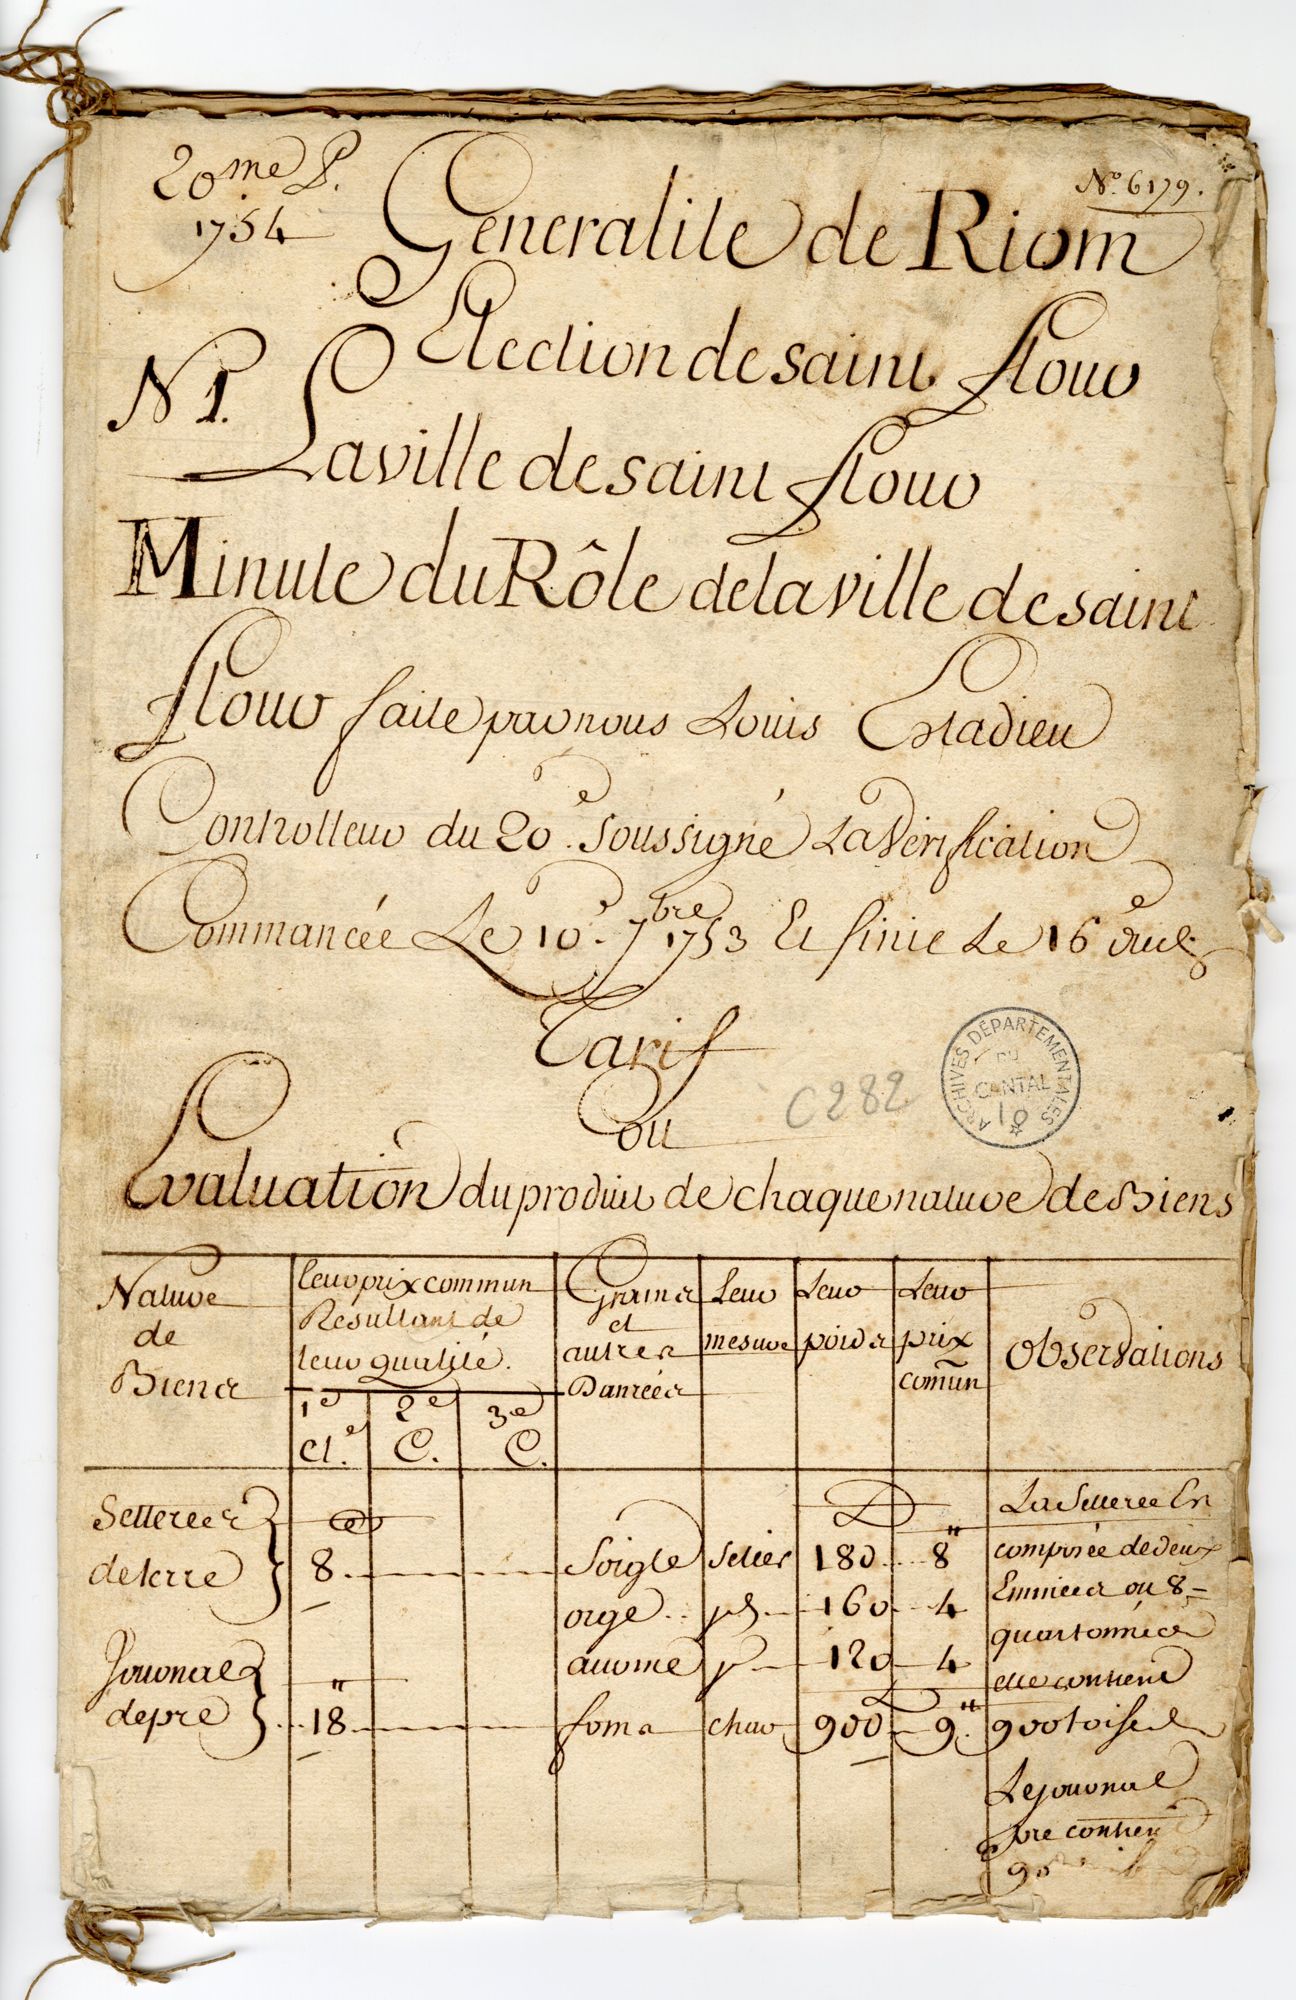 20me P.
1754
No. 6179.
Generalite de Riom
Election de saint flour
N 1.
La ville de saint flour
Minute du Rôle de la ville de saint
flour faite par nous Louis
Controlleur du 20e. soussigné La Verification
Commancée Le 10e. 7bre 1753 Et finie Le 16e dud.
Tarif
ou
C 282
ARCHIVES DÉPARTEMENTALES
DU
CANTAL
Evaluation du produit de chaque nature de Biens
Nature
de
Biens
leur prix commun
Resultant de
leur qualité.
1e
Cl.e
2e
C.
3e
C.
Grains
et
autres
Danrées
Leur
mesure
Leur
poids
Leur
prix
comun
Observations
Setterées
de terre
8
Soigle setier 180 8"
orge 160 4
avoine 120 4
Journal
de pré
18
foins char 900 9"
La Setterée Est
composée de deux
Eminées ou 8
quartonnées
elle contient
900 toises
Le journal
pre contient